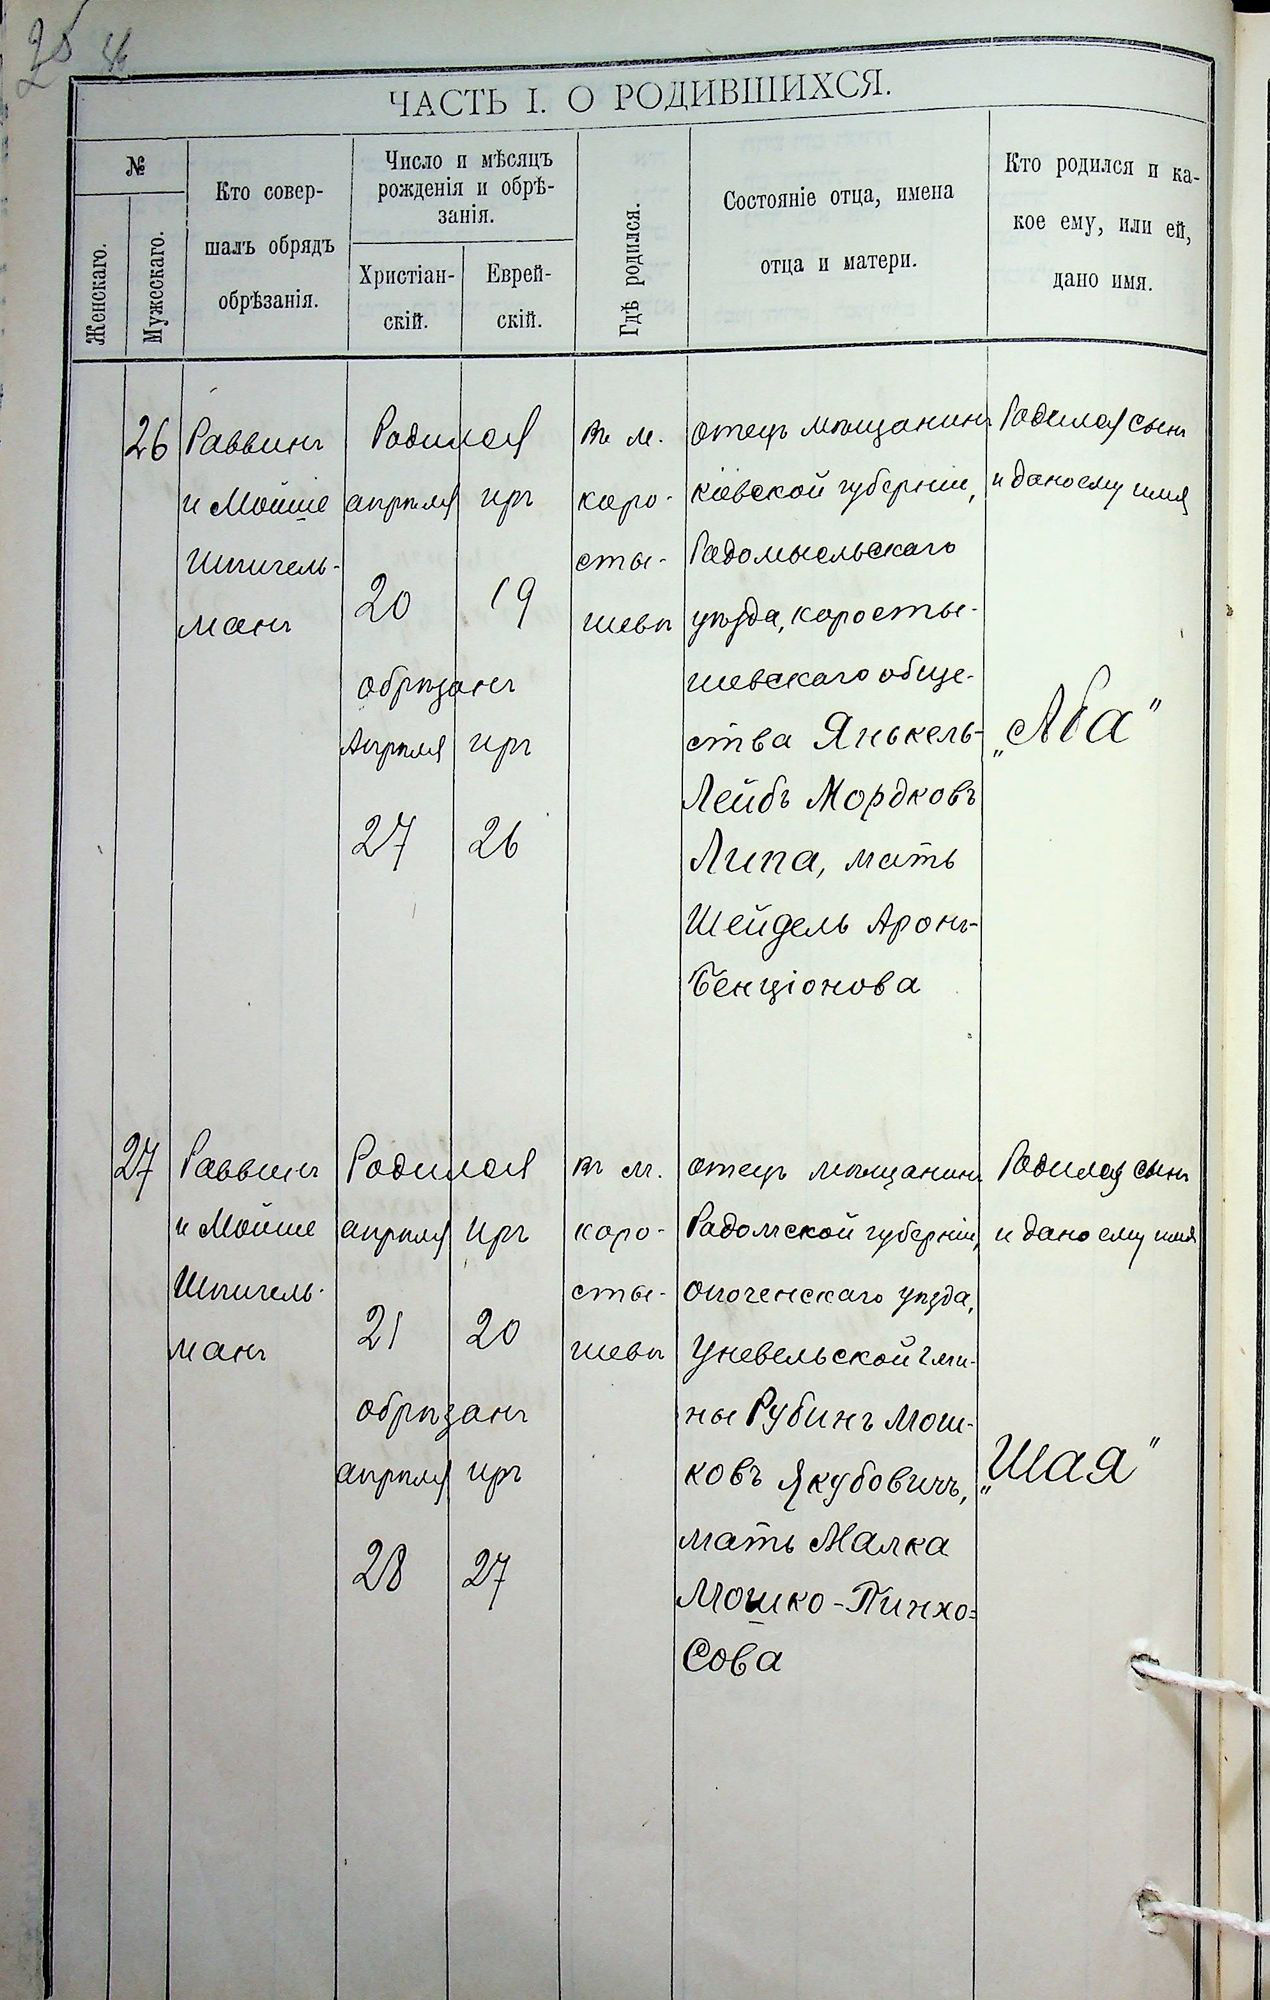 25
ЧАСТЬ I. О РОДИВШИХСЯ.
№
Женскаго.
Мужескаго.
Кто совер-
шалъ обрядъ
обрѣзанія.
Число и мѣсяцъ
рожденія и обрѣ-
занія.
Христіан-
скій.
Еврей-
скій.
Гдѣ родился.
Состояніе отца, имена
отца и матери.
Кто родился и ка-
кое ему, или ей,
дано имя.
26
Раввинъ
и Мойше
Шпигель-
манъ
Родился
апрѣля иръ
20 19
обрѣзанъ
Апрѣля иръ
27 26
въ м.
коро-
сты-
шевѣ
отецъ мѣщанинъ
кіевской губерніи,
Радомысльскаго
уѣзда, коросты-
шевскаго обще-
ства Янькель-
Лейбъ Мордковъ
Липа, мать
Шейдель Аронъ-
Бенціонова
Родился сынъ
и дано ему имя
„Аба"
27
Раввинъ
и Мойше
Шпигель-
манъ
Родился
апрѣля иръ
21 20
обрѣзанъ
апрѣля иръ
28 27
въ м.
коро-
сты-
шевѣ
отецъ мѣщанинъ
Радомской губерніи,
опоченскаго уѣзда,
Уневельской гми-
ны Рубинъ Мош-
ковъ Якубовичъ,
мать Малка
Мошко-Пинхо=
сова
Родился сынъ
и дано ему имя
„Шая"